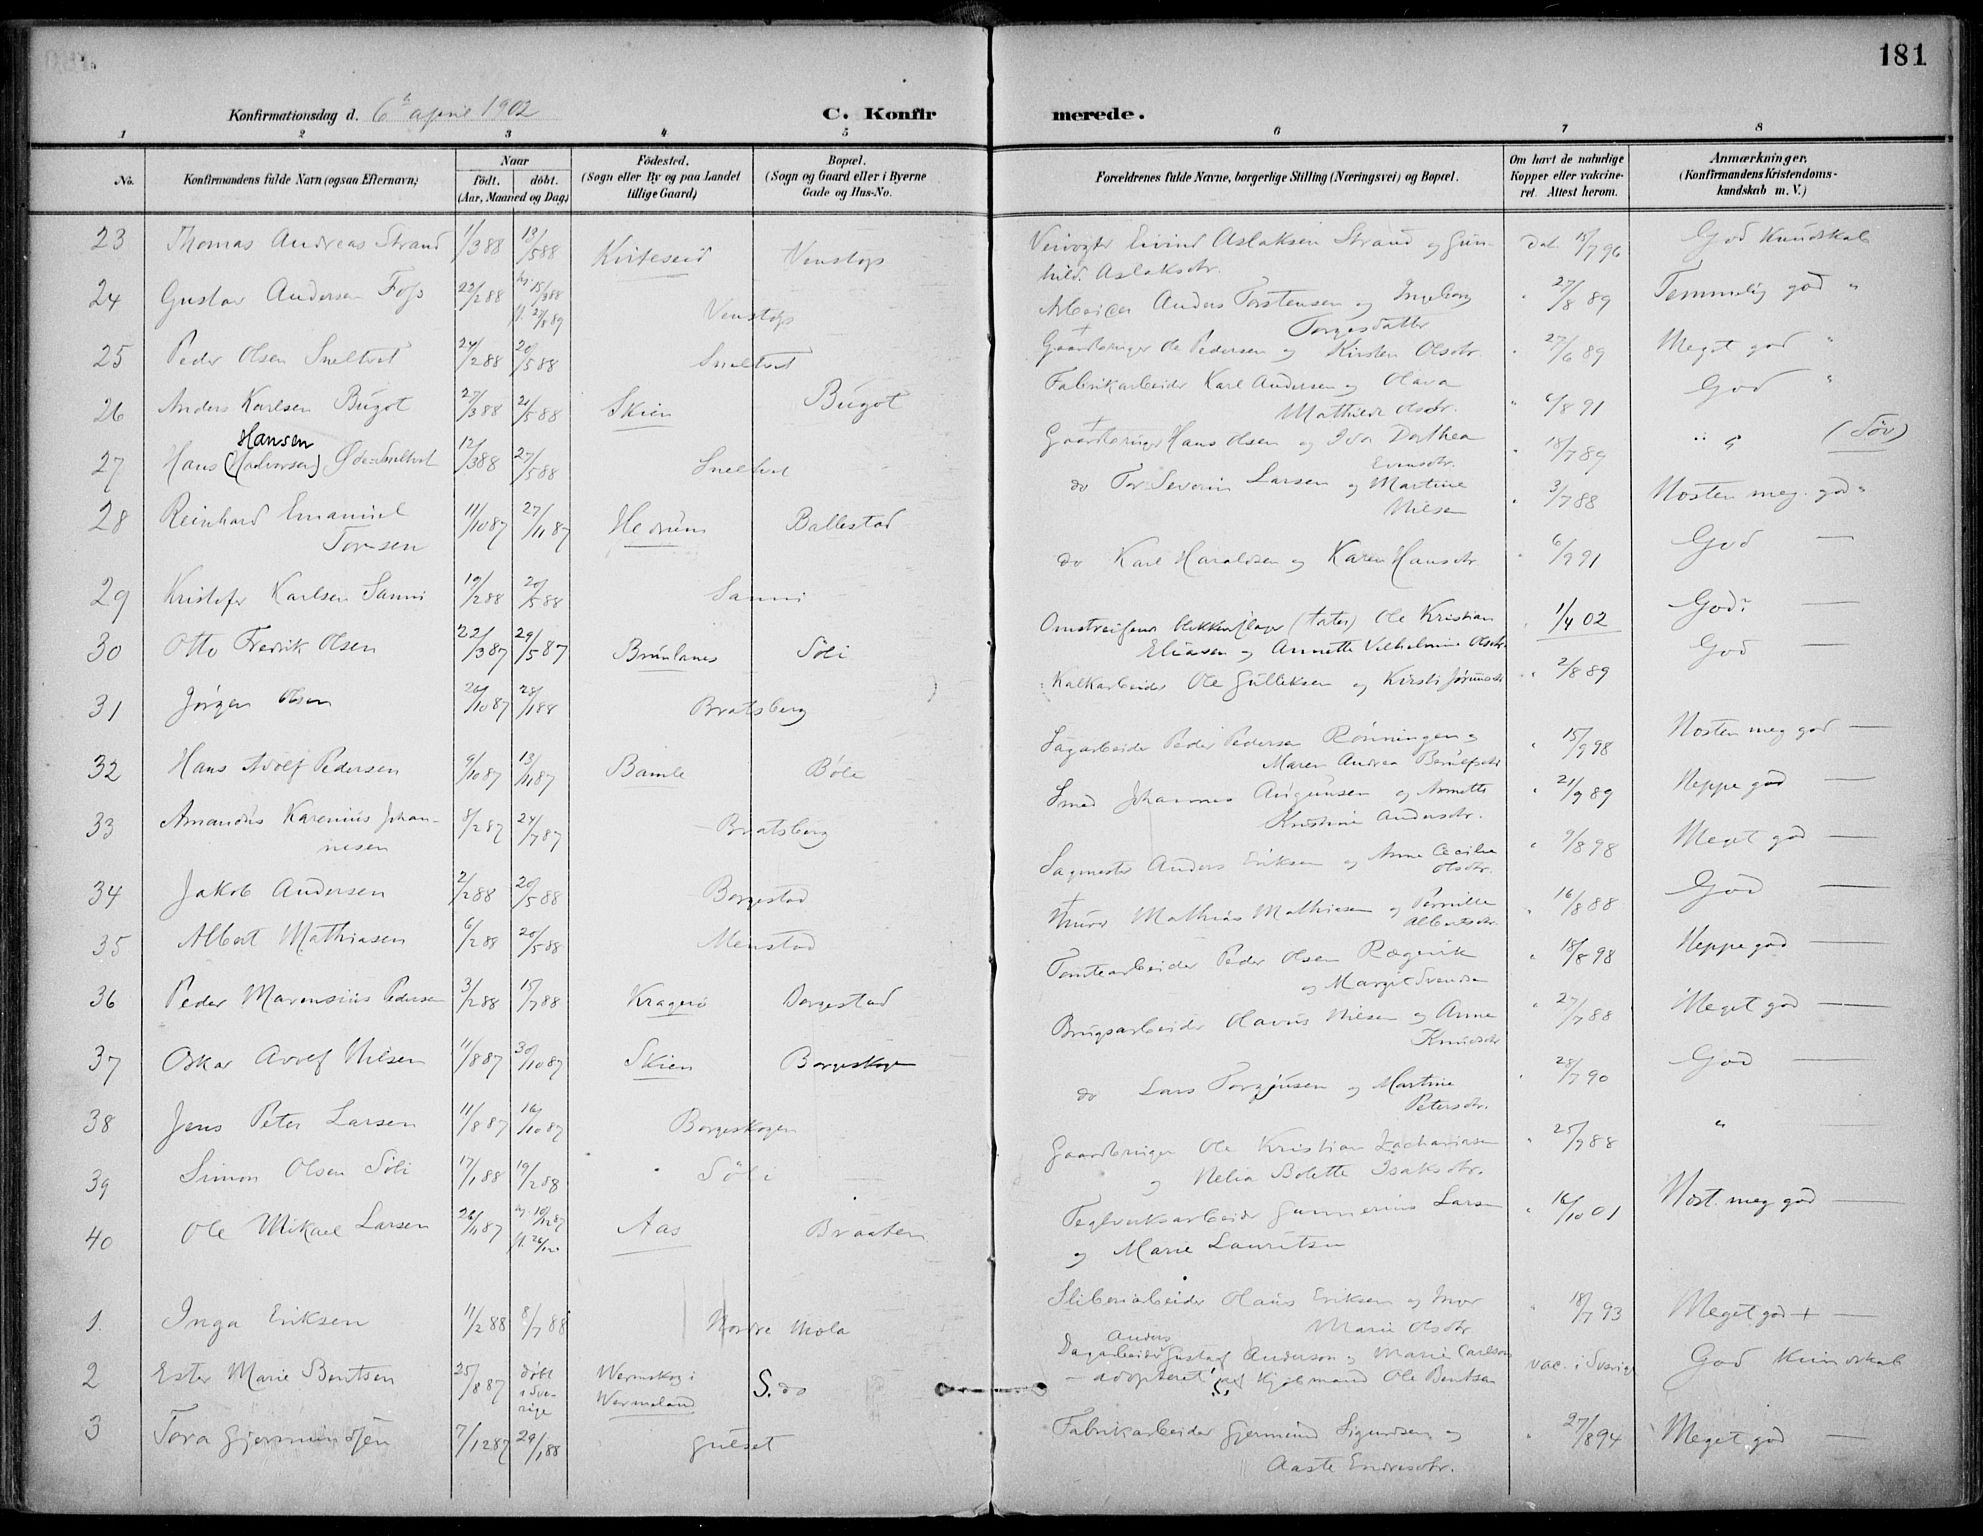 181
Konfirmationsdag d. 6te april 1902
C. Konfirmerede.
1 2 3 4 5 6 7 8
No.
Konfirmandens fulde Navn (ogsaa Efternavn)
Naar
født. døbt.
(Aar, Maaned og Dag)
Fødested.
(Sogn eller By og paa Landet
tillige Gaard)
Bopæl.
(Sogn og Gaard eller i Byerne
Gade og Hus-No.
Forældrenes fulde Navne, borgerlige Stilling (Næringsvei) og Bopæl.
Om havt de naturlige
Kopper eller vakcine-
ret. Attest herom.
Anmærkninger.
(Konfirmandens Kristendoms-
kundskab m. V.)
23 Thomas Andreas Strand 1/3 88 13/5 88 Kviteseid Venstøp Veivogter Eivind Aslaksen Strand og Gun-
hild Aslaksdtr. Dat. 15/7 96 God Kundskab
24 Gustav Andersen Foss 22/2 88 hj. 15/3 88
f. 27/8 89 Venstøp Arbeider Anders Torstensen og Ingeborg
Torgesdatter " 27/8 89 Temmelig god "
25 Peder Olsen Sneltvet 24/2 88 20/5 88 Sneltvet † Gaardbruger Ole Pedersen og Kirsten Olsdtr. " 27/6 89 Meget god "
26 Anders Karlsen Bugot 27/3 88 21/5 88 Skien Bugot Fabrikarbeider Karl Andersen og Olava
Mathilde Olsdtr. " 6/8 91 God "
27 Hans (Halvorsen) Hansen Øde-Sneltvet 12/3 88 27/5 88 Sneltvet † Gaardbruger Hans Olsen og Ida Dorthea
Evensdtr. " 18/7 89 " " (Døv)
28 Reinhard Emanuel
Torsen 11/10 87 27/11 87 Hedrum Ballestad do Tor Severin Larsen og Martine
Nilsen " 3/7 88 Nosten meg. god "
29 Kristofer Karlsen Sanni 19/2 88 20/5 88 Sanni do Karl Haraldsen og Karen Hansdtr " 6/9 91 God —
30 Otto Fredrik Olsen 22/3 87 29/5 87 Brunlanes Søli Omstreifende blikkenslager (tater) Ole Kristian
Eliasen og Annette Vilhelmine Olsdtr. " 1/4 02 God —
31 Jørgen Olsen 26/10 87 28/1 88 Bratsberg Kalkarbeider Ole Gulleksen og Kirsti Jørunsdtr " 2/8 89 God —
32 Hans Adolf Pedersen 9/10 87 13/11 87 Bamle Bøle Sagarbeider Peder Pedersen Rønningen og
Maren Andrea " 15/9 98 Nosten meg god —
33 Amandus Karenius Johan-
nesen 8/2 87 24/7 87 Bratsberg Smed Johannes og Annette
Kristine Andersdtr. " 21/9 89 Neppe god —
34 Jakob Andersen 2/2 88 20/5 88 Borgestad Sagmester Anders Eriksen og Anne Cecilie
Olsdtr. " 9/8 98 Meget god —
35 Albert Mathiasen 6/2 88 20/5 88 Menstad † Murer Mathias Mathiasen og Pernille
Albertsdtr. " 16/8 88 God —
36 Peder Marensius Pedersen 3/2 88 15/7 88 Kragerø Borgestad Tomtearbeider Peder Olsen Rægevik
og Margit Svendsen " 18/8 98 Neppe god —
37 Oskar Adolf Nilsen 11/8 87 30/10 87 Skien Borgeskogen Brugsarbeider Olavus Nilsen og Anne
Knudsdtr " 27/7 88 Meget god —
38 Jens Peter Larsen 11/8 87 16/10 87 Borgeskogen do Lars Torgjusen og Martine
Petersdtr. " 28/7 90 God —
39 Simon Olsen Søli 17/1 88 19/2 88 Søli Gaardbruger Ole Kristian Zachariasen
og Nelia Bolette Isaksdtr. " 25/9 88 " —
40 Ole Mikael Larsen 26/11 87 hj. 10/12 87
f. Aas Braaten Teglverksarbeider Gunnerius Larsen
og Marie Lauritsen " 16/10 01 Nost. meg god —
1. Inga Eriksen 11/2 88 8/7 88 Nordre Mæla Sliberiarbeider Olaus Eriksen og Inger
Marie Olsdtr. " 18/7 93 Meget god + —
2 Ester Marie Bentsen 25/8 87 døbt
i Sve-
rige Wermskog i
Wermeland S. do Dagarbeider Anders Gustaf Anderson og Marie Carlson
— adopteret af Kjøbmand Ole Bentsen vac. i Sverige God Kundskab
3 Tora Gjermundsen 7/12 87 29/1 88 Gulset Fabrikarbeider Gjermund Sigurdsen og
Aaste Endresdtr. " 27/8 94 Meget god —